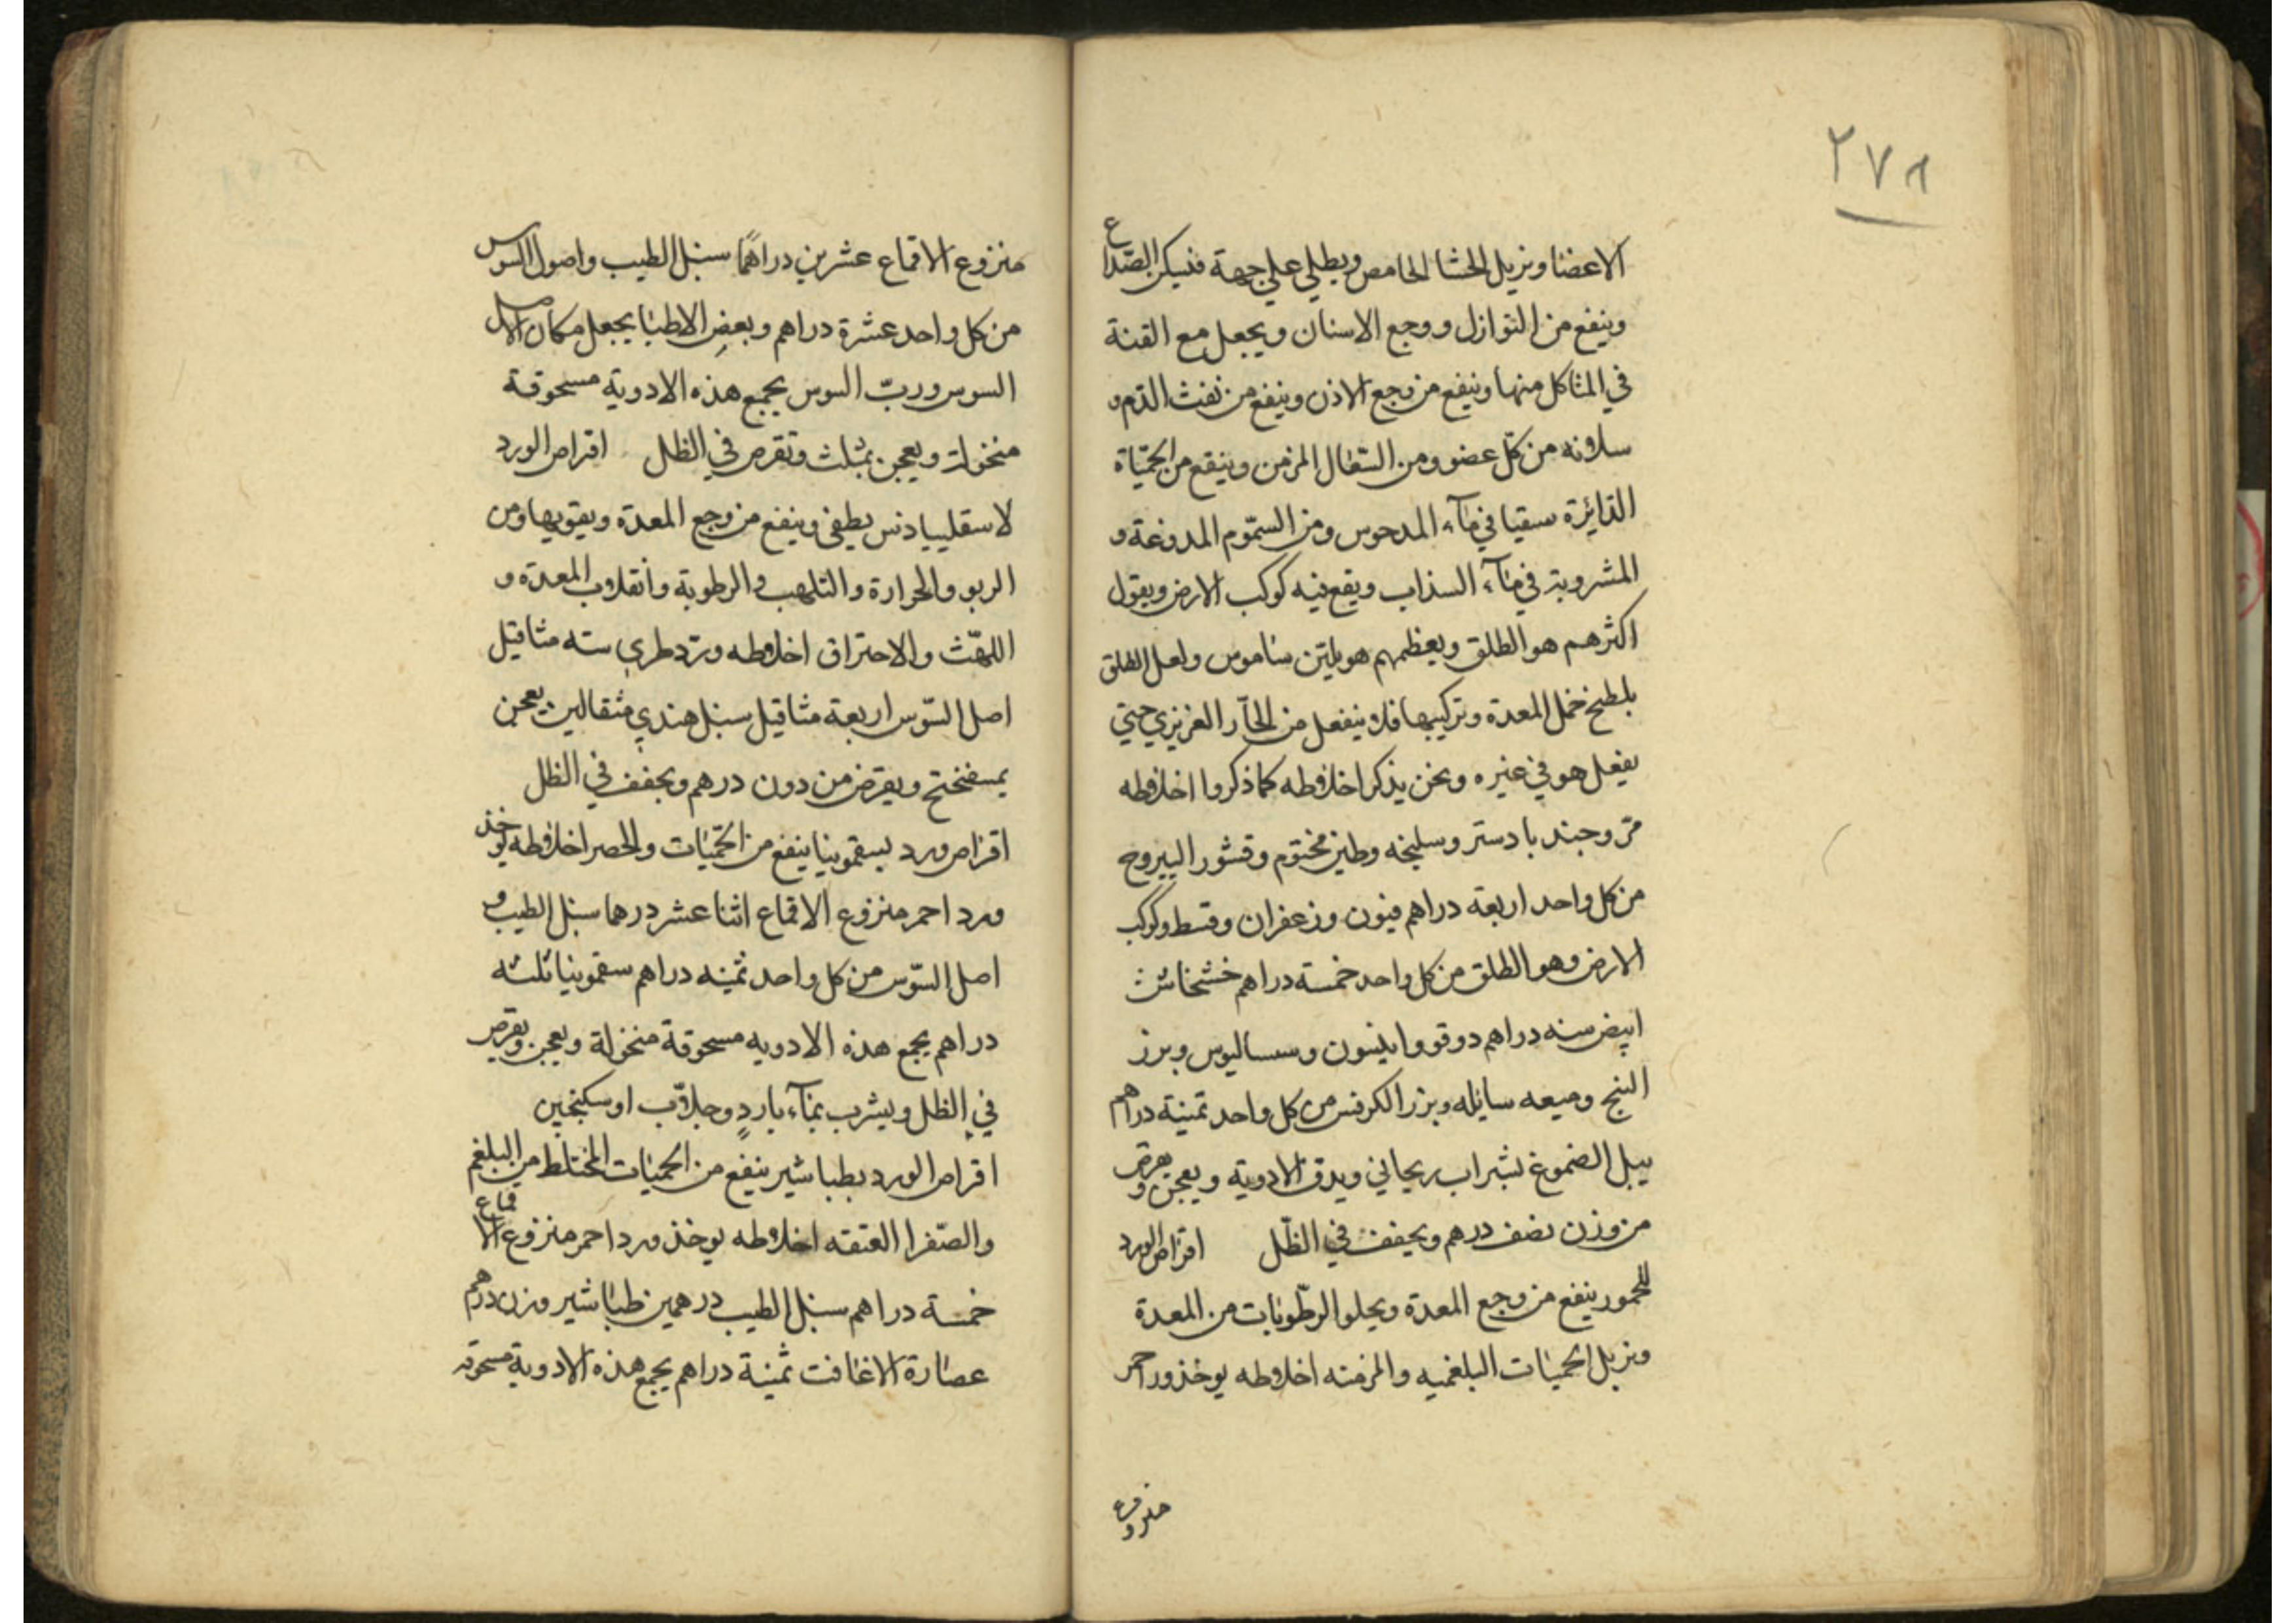 ٢٧٨
الاعضا ويزيل الحشا الحامض ويطلي علي جهة فيسكن الصداع
وينفع من النوازل ووجع الاسنان ويجعل مع القنة
في المتاكل منها وينفع من وجع الاذن وينفع من نفث الدم و
سلانه من كل عضو ومن السعال المزمن وينفع من الحمياة
الدائرة سقيا في مآء المدحوس ومن السموم المدوغة و
المشروبة في مآء السذاب ويقع فيه كوكب الارض ويقول
اكثرهم هو الطلق وبعظمهم هو يلتن ساموس ولعل الطلق
بلطخ خمل المعدة وتركيبها فلا ينفعل من الحآر الغريزي حتي
يفعل هو في غيره ونحن يذكر اخلاطه كما ذكروا اخلاطه
مر وجند بادستر وسليخه وطين مختوم وقشور اليبروح
من كل واحد اربعة دراهم فيون وزعفران وقسط وكوكب
الارض وهو الطلق من كل واحد خمسة دراهم خشخاش
ابيض سنه دراهم دوقو وانيسون وسساليوس وبزر
البنج وميعه سايله وبزر الكرفس من كل واحد ثمينة دراهم
يبل الضموغ بشراب ريحاني ويدق الادوية ويعجن ويقرص
من وزن نصف درهم ويجفف في الظل اقراص الورد
للمحمور ينفع من وجع المعدة ويجلو الرطوبات من المعدة
ويزيل الحميات البلغميه والمزمنه اخلاطه يوخذ ورد احمر
منزوع
منزوع الاقماع عشرين دراهما سنبل الطيب واصول السوس
من كل واحد عشرة دراهم وبعض الاطبا يجعل مكان اصل
السوس ورب السوس يجمع هذه الادوية مسحوقة
منخولة ويعجن بمثلث وتقرص في الظل اقراص الورد
لاسقليبيادنس يطفي وينفع من وجع المعدة ويقويها ومن
الربو والحرارة والتلهب والرطوبة وانقلاب المعدة و
اللهث والاحتراق اخلاطه ورد طري سته مثاقيل
اصل السوس اربعة مثاقيل سنبل هندي مثقالين يعجن
بميفختج ويقرض من دون درهم ويجفف في الظل
اقراص ورد بسقمونيا ينفع من الحميات والحصر اخلاطه يوخذ
ورد احمر منزوع الاقماع اثنا عشر درهما سنبل الطيب و
اصل السوس من كل واحد ثمينه دراهم سقمونيا ثلثه
دراهم يجمع هذه الادويه مسحوقة منخولة ويعجن ويقرص
في الظل ويشرب بمآء بارد وجلاب او سكنجبين
اقراص الورد بطباشير ينفع من الحميات المختلط من البلغم
والصفرا العتقه اخلاطه يوخذ ورد احمر منزوع الاقماع
خمسة دراهم سنبل الطيب درهمين طباشير وزن درهم
عصارة الاغافت ثمينة دراهم يجمع هذه الادوية مسحوقه